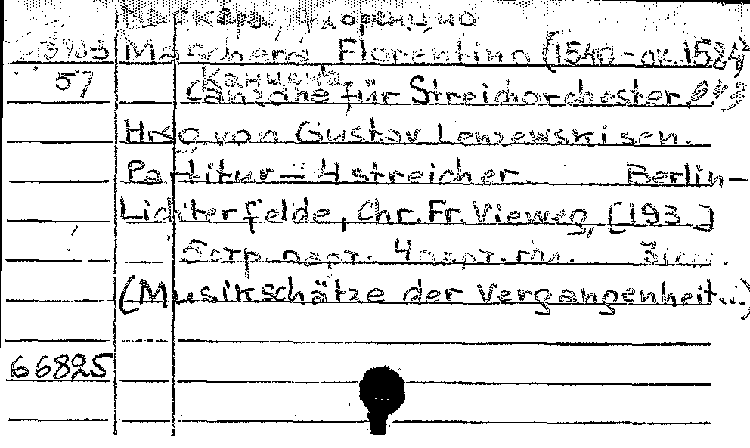 Маскера, Флоренцио
Maschera Florentino (1540-ок.1584)
57 Канцона
Canzone für Streichorchester
Hrsg von Gustav Lenzewski sen.
Partitur - 4 streicher Berlin-
Lichterfelde, Chr. Fr. Vieweg, [193 ]
5 стр. парт. 4 парт.
(Musikschätze der Vergangenheit..)
66825